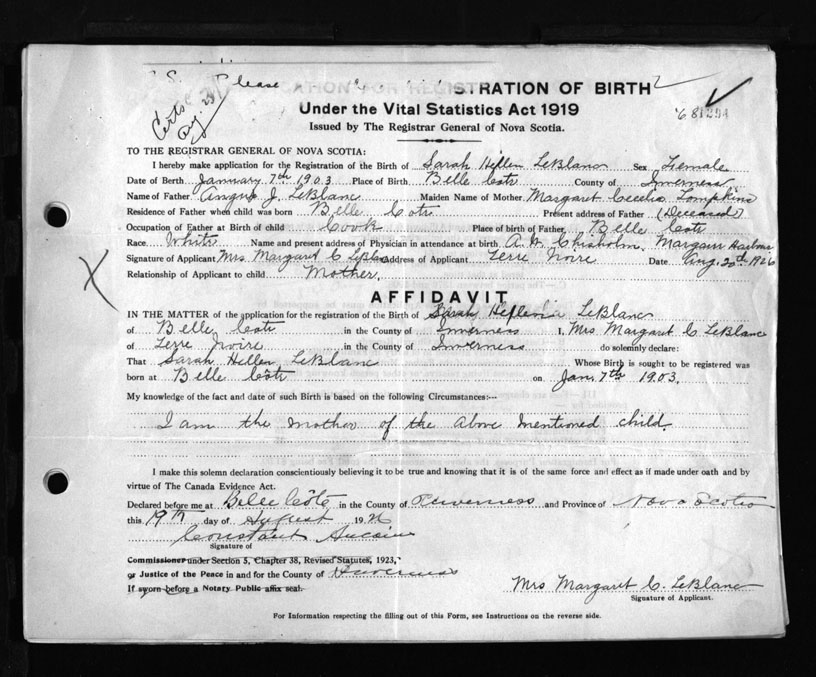 Please
Certs
Aug. 29
STRATION OF BIRTH
Under the Vital Statistics Act 1919
Issued by The Registrar General of Nova Scotia.
TO THE REGISTRAR GENERAL OF NOVA SCOTIA:
I hereby make application for the Registration of the Birth of Sarah Hellen LeBlanc Sex Female
Date of Berth January 7th 1903 Place of Birth Belle Cote County of Inverness
Name of Father Angus J. LeBlanc Maiden Name of Mother Margaret Cecelia Tompkins
Residence of Father when child was born Belle Cote Present address of Father (Deceased)
Occupation of Father at Birth of child Cook Place of birth of Father Belle Cote
Race White Name and present address of Physician in attendance at birth A. W. Chisholm, Margaree Harbour
Signature of Applicant Mrs. Margaret C LeBlanc Address of Applicant Terre Noire Date Aug. 20th 1926
Relationship of Applicant to child Mother.
AFFIDAVIT
IN THE MATTER of the application for the registration of the Birth of Sarah LeBlanc
of Belle Cote in the County of Inverness I, Mrs Margaret C LeBlanc
of Terre Noire in the County of Inverness do solemnly declare:
That Sarah Hellen LeBlanc Whose Birth is sought to be registered was
born at Belle Côte on Jan. 7th 1903.
My knowledge of the fact and date of such Birth is based on the following Circumstances:—
I am the mother of the above mentioned child.
I make this solemn declaration conscientiously believing it to be true and knowing that it is of the same force and effect as if made under oath and by
virtue of The Canada Evidence Act.
Declared before me at Belle Côte in the County of Inverness and Province of Nova Scotia
this 19th day of August 1926
Constant Aucoin
Signature of
Commissioner under Section 5, Chapter 38, Revised Statutes, 1923,
or Justice of the Peace in and for the County of Inverness
If sworn before a Notary Public affix seal.
Mrs Margaret C. LeBlanc
Signature of Applicant.
For Information respecting the filling out of this Form, see Instructions on the reverse side.